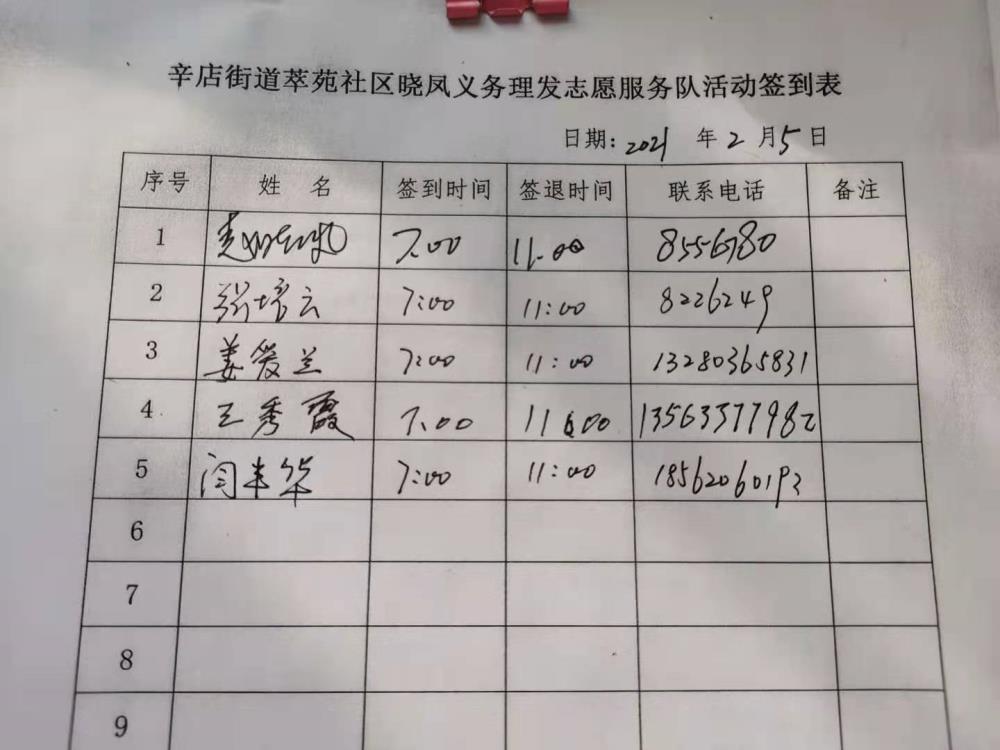 辛店街道萃苑社区晓凤义务理发志愿服务队活动签到表
日期: 2021 年 2 月 5 日
序号 姓 名 签到时间 签退时间 联系电话 备注
1 7.00 11.00 8556780
2 张培云 7:00 11:00 8226249
3 姜爱兰 7:00 11:00 13280365831
4 王秀霞 7.00 11:00 13563377982
5 闫丰华 7:00 11:00 18562060192
6
7
8
9